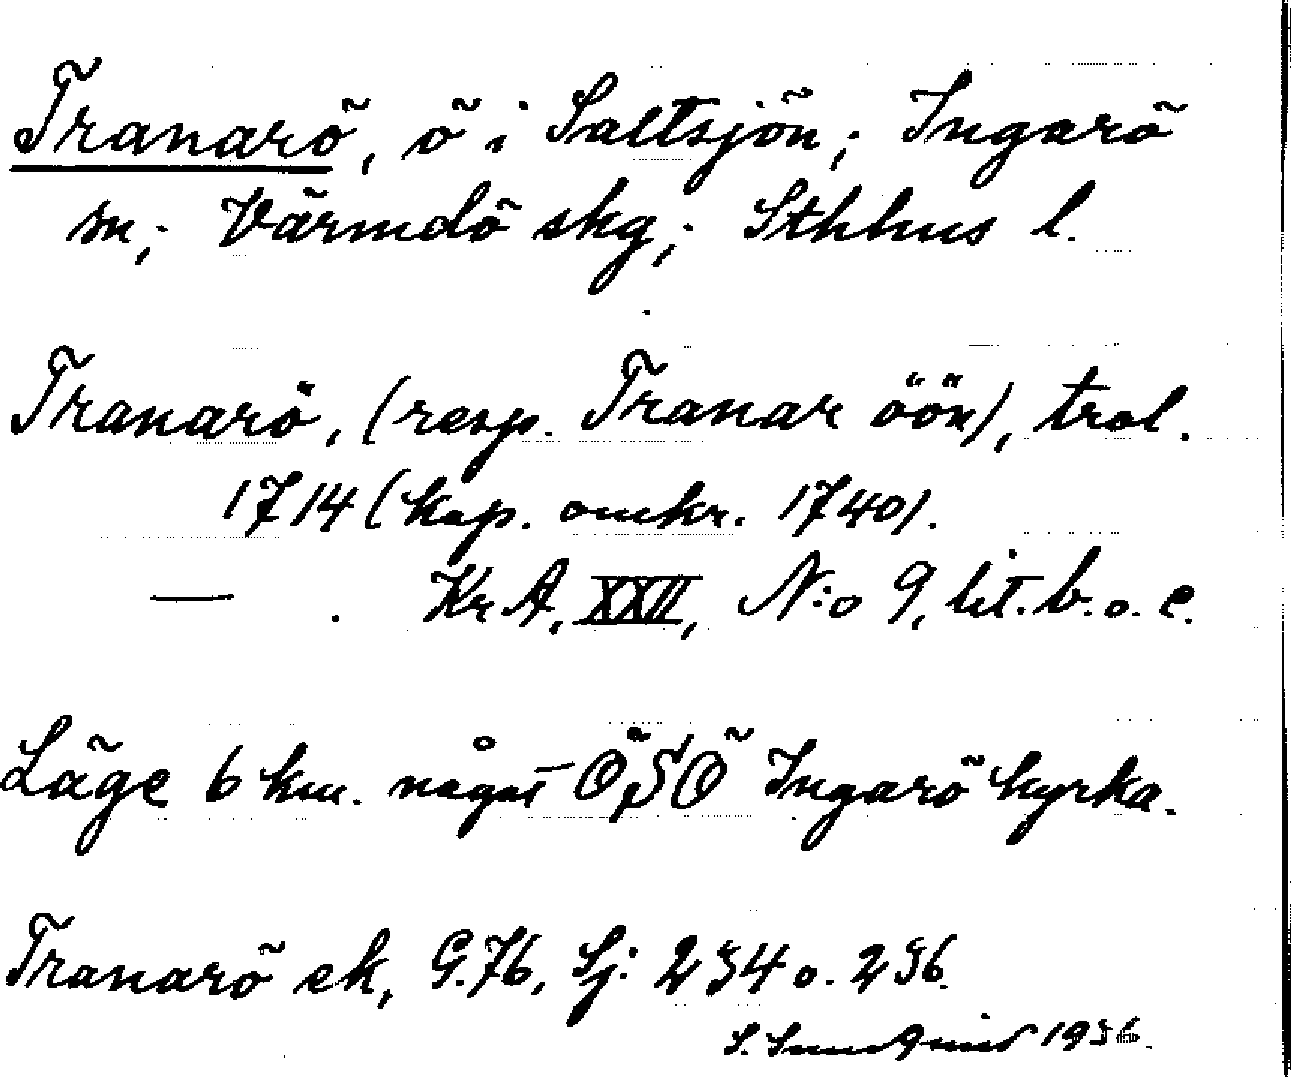 Tranarö, ö i Saltsjön; Ingarö
sn; Värmdö skg; Sthlms l.
Tranarö, (resp. Tranar öön), trol.
1714 (kop. omkr. 1740).
— Kr A, XXII, N:o 9, lit. b. o. c.
Läge 6 km. något ÖSÖ Ingarö kyrka.
Tranarö ek, G.76, Sj: 234 o. 236.
S. Sundqvist 1936.